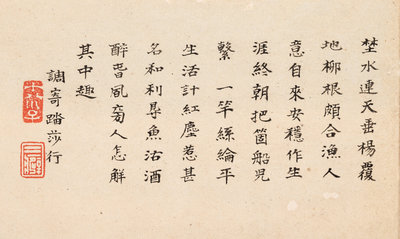 埜水連天垂楊覆
地柳根頗合漁人
意自來安穩作生
涯終朝把箇船兒
繫 一竿絲綸平
生活計紅塵惹甚
名和利尋魚沽酒
醉旾風旁人怎解
其中趣
調寄踏莎行